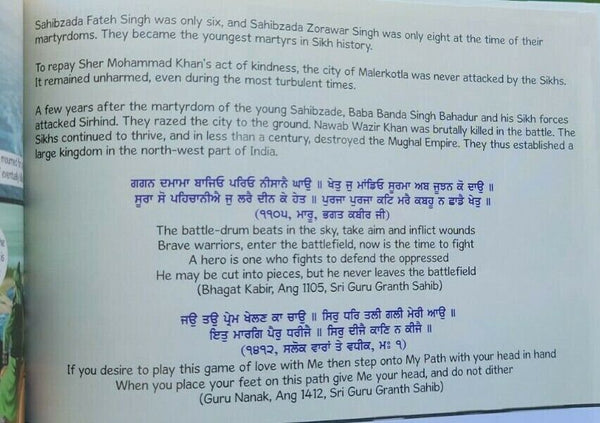 Sahibzada Fateh Singh was only six, and Sahibzada Zorawar Singh was only eight at the time of their
martyrdoms. They became the youngest martyrs in Sikh history.
To repay Sher Mohammad Khan's act of kindness, the city of Malerkotla was never attacked by the Sikhs.
It remained unharmed, even during the most turbulent times.
A few years after the martyrdom of the young Sahibzade, Baba Banda Singh Bahadur and his Sikh forces
attacked Sirhind. They razed the city to the ground. Nawab Wazir Khan was brutally killed in the battle. The
Sikhs continued to thrive, and in less than a century, destroyed the Mughal Empire. They thus established a
large kingdom in the north-west part of India.
ਗਗਨ ਦਮਾਮਾ ਬਾਜਿਓ ਪਰਿਓ ਨੀਸਾਨੈ ਘਾਉ ॥ ਖੇਤੁ ਜੁ ਮਾਂਡਿਓ ਸੂਰਮਾ ਅਬ ਜੂਝਨ ਕੋ ਦਾਉ ॥
ਸੂਰਾ ਸੋ ਪਹਿਚਾਨੀਐ ਜੁ ਲਰੈ ਦੀਨ ਕੇ ਹੇਤ ॥ ਪੁਰਜਾ ਪੁਰਜਾ ਕਟਿ ਮਰੈ ਕਬਹੂ ਨ ਛਾਡੈ ਖੇਤੁ ॥
(੧੧੦੫, ਮਾਰੂ, ਭਗਤ ਕਬੀਰ ਜੀ)
The battle-drum beats in the sky, take aim and inflict wounds
Brave warriors, enter the battlefield, now is the time to fight
A hero is one who fights to defend the oppressed
He may be cut into pieces, but he never leaves the battlefield
(Bhagat Kabir, Ang 1105, Sri Guru Granth Sahib)
ਜਉ ਤਉ ਪ੍ਰੇਮ ਖੇਲਣ ਕਾ ਚਾਉ ॥ ਸਿਰੁ ਧਰਿ ਤਲੀ ਗਲੀ ਮੇਰੀ ਆਉ ॥
ਇਤੁ ਮਾਰਗਿ ਪੈਰੁ ਧਰੀਜੈ ॥ ਸਿਰੁ ਦੀਜੈ ਕਾਣਿ ਨ ਕੀਜੈ ॥
(੧੪੧੨, ਸਲੋਕ ਵਾਰਾਂ ਤੇ ਵਧੀਕ, ਮਃ ੧)
If you desire to play this game of love with Me then step onto My Path with your head in hand
When you place your feet on this path give Me your head, and do not dither
(Guru Nanak, Ang 1412, Sri Guru Granth Sahib)